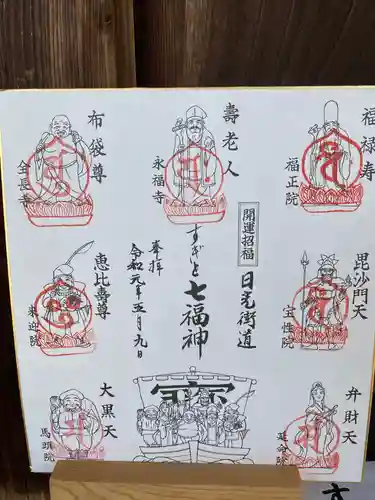 福禄寿
福正院
壽老人
永福寺
布袋尊
全長寺
毘沙門天
宝性院
開運招福
日光街道
すぎと七福神
奉拝
令和元年五月九日
恵比寿尊
来迎院
弁財天
延命院
寳
大黒天
馬頭院